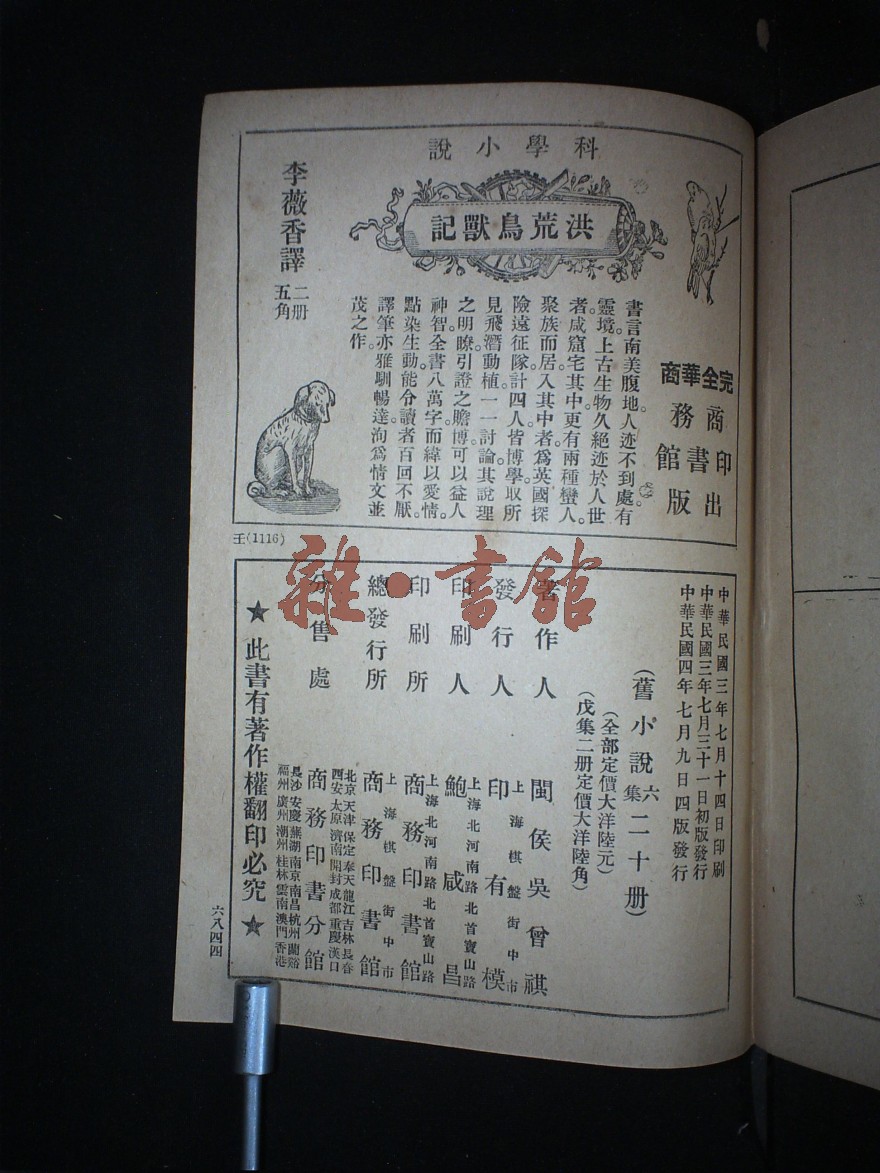 科學小說
洪荒鳥獸記
完全華商
商務印書館出版
書言南美腹地。人迹不到處。有
靈境。上古生物久絕迹於人世
者。咸窟宅其中。更有兩種蠻人。
聚族而居。入其中者。爲英國探
險遠征隊。計四人。皆博學。取所
見飛潛動植。一一討論。其說理
之明瞭。引證之贍博。可以益人
神智。全書八萬字。而緯以愛情。
點染生動。能令讀者百回不厭。
譯筆亦雅馴暢達。洵爲情文並
茂之作。
李薇香譯
二册
五角
壬(1116)
中華民國三年七月十四日印刷
中華民國三年七月三十一日初版發行
中華民國四年七月九日四版發行
(舊小說六集二十册)
(全部定價大洋陸元)
(戊集二册定價大洋陸角)
著作人 閩侯吳曾祺
發行人 上海棋盤街中市 印有模
印刷人 上海北河南路北首寶山路 鮑咸昌
印刷所 上海北河南路北首寶山路 商務印書館
總發行所 上海棋盤街中市 商務印書館
分售處 北京天津保定奉天龍江吉林長春
西安太原濟南開封成都重慶漢口
商務印書分館
長沙安慶蕪湖南京南昌杭州蘭谿
福州廣州潮州桂林雲南澳門香港
★此書有著作權翻印必究★
六八四四
雜·書館